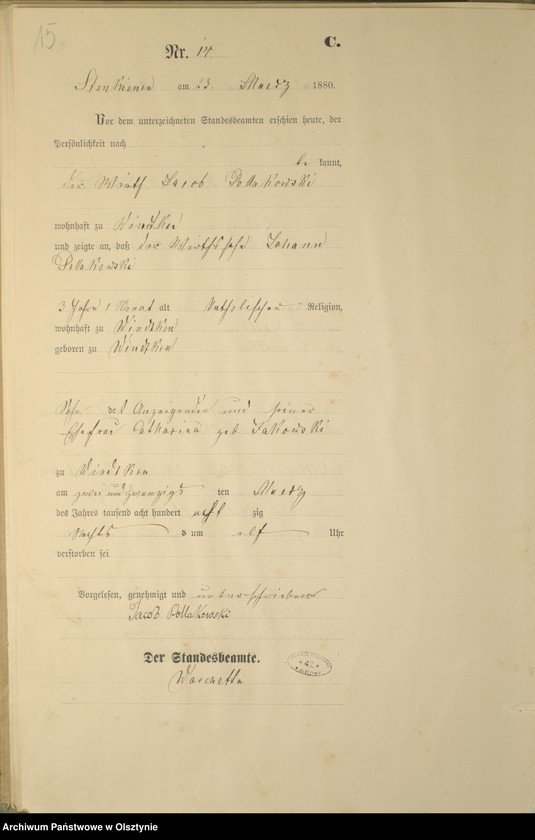 15
C.
Nr. 14.
am 23. Maerz 1880.
Vor dem unterzeichneten Standesbeamten erschien heute, der
Persönlichkeit nach
be kannt,
der Wirth Jacob Pollakowski
wohnhaft zu Windtken
und zeigte an, daß der Wirthssohn Johann
Pollakowski
3 Jahre 1 Monat alt katholischer Religion,
wohnhaft zu Windtken
geboren zu Windtken
Sohn des Anzeigenden und seiner
Ehefrau Catharina geb.
zu Windtken
am zwei und zwanzigs ten Maerz
des Jahres tausend acht hundert acht zig
Nachts um elf Uhr
verstorben sei
Vorgelesen, genehmigt und unterschrieben
Jacob Pollakowski
Der Standesbeamte.
Archiwum Państwowe w Olsztynie